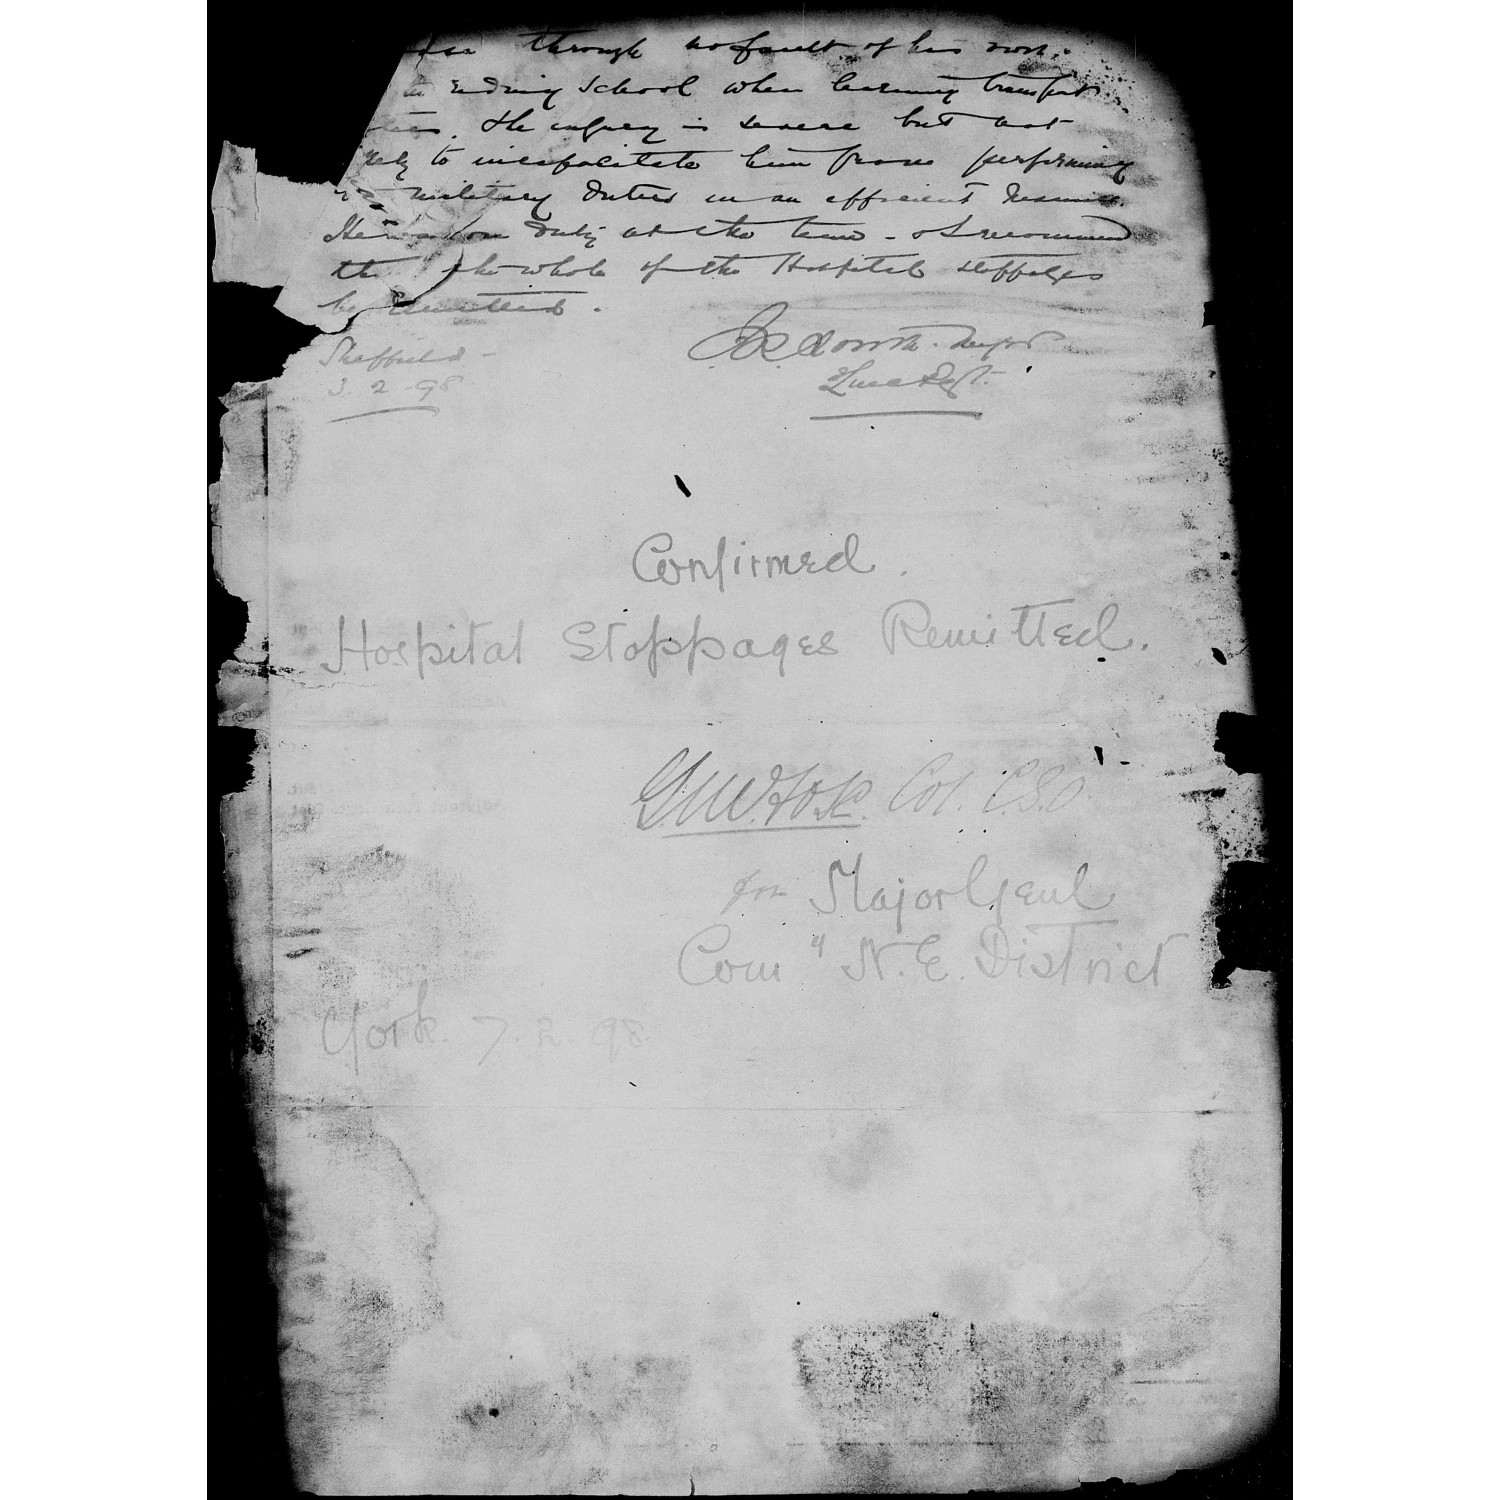 through no fault of his own.
Riding School when learning transport
The injury is severe but not
to incapacitate him from performing
military duties in an efficient manner
He was on duty at the time - I recommend
the whole of the Hospital stoppages
be remitted.
Sheffield -
3. 2. 98
Major
Confirmed.
Hospital Stoppages Remitted.
Col. C.S.O.
for Major Genl
Com" N.E. District
York. 7. 2. 98.